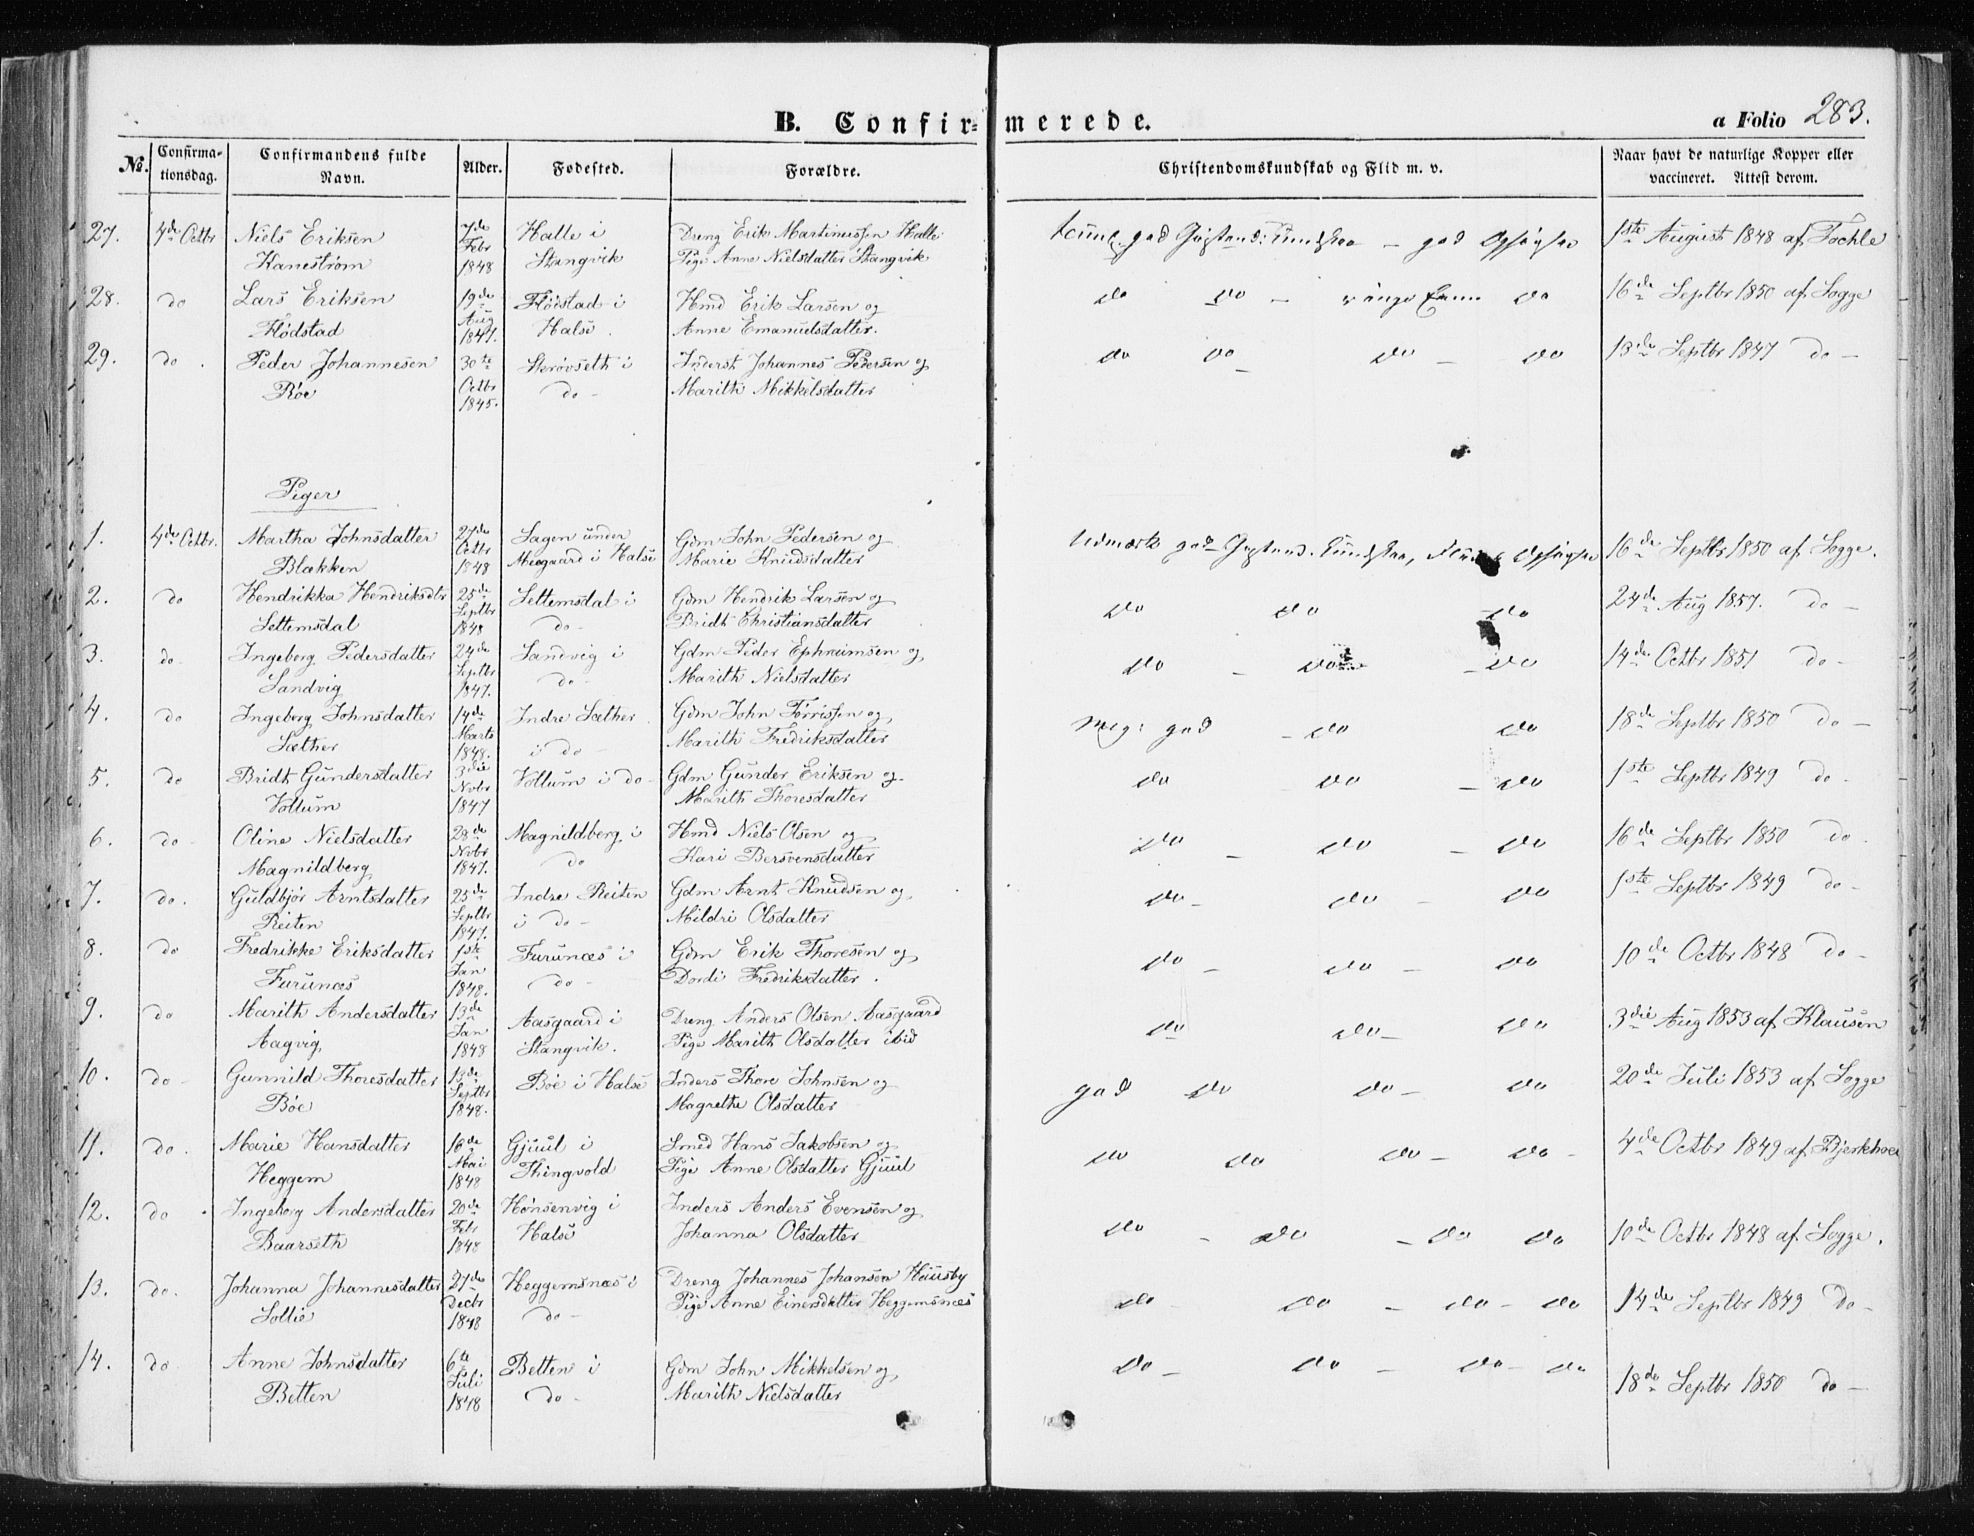 B. Confirmerede.
a Folio 283.
No. Confirmationsdag. Confirmandens fulde Navn. Alder. Fødested. Forældre. Christendomskundskab og Flid m. v. Naar havt de naturlige Kopper eller vaccineret. Attest derom.
27. 4de Octbr Niels Eriksen 7de Halle i Dreng Erik Martinussen Halle 1ste August 1848 af Tochle
Kanestrøm Febr 1848 Stangvik Pige Anne Nielsdatter Stangvik
28. do Lars Eriksen 19de Flödstad i Hmd Erik Larsen og do do do 16de Septbr 1850 af Sogge
Flödstad Aug 1847. Halse. Anne Emanuelsdatter.
29. do. Peder Johannesen 30te Skrövseth i Inderst Johannes Pedersen og do do do do 13de Septbr 1847 do
Röe Octbr 1845. do Marith Mikkelsdatter
Piger
1. 4de Octbr. Martha Johnsdatter 27de Sagen under Gdm John Pedersen og 16de Septbr 1850 af Sogge.
Blækken Octbr 1848 Moegaard i Halse Marie Knudsdatter
2. do Hendrikka Hendriksdtr 25de Settemsdal i Gdm Hendrik Larsen og do do do 24de Aug 1857. do
Settemsdal Septbr 1848 do Bridt Christiansdatter
3. do Ingeborg Pedersdatter 24de Sandvig i Gdm Peder Ephraimsen og do do do 14de Octbr 1851 do
Sandvig Septbr 1847. do Marith Nielsdatter
4. do Ingeborg Johnsdatter 14de Indre Sæther Gdm John Torrissen og meg: god do do 18de Septbr 1850 do
Sæther Marts 1848. i do Marith Fredriksdatter
5. do Bridt Gundersdatter 3die Vollum i do Gdm Gunder Eriksen og do do do 1ste Septbr 1849 do
Vollum Nvbr 1847 Marith Thoresdatter
6. do Oline Nielsdatter 28de Magnildberg i Hmd Niels Olsen og do do do 16de Septbr 1850 do
Magnildberg Nvbr 1847. do Kari Bersvensdatter
7. do. Guldbjör Arntsdatter 25de Indre Reiten Gdm Arnt Knudsen og do do do 1ste Septbr 1849 do
Reiten Septbr 1847. i do Mildri Olsdatter
8. do Fredrikke Eriksdatter 1ste Furunæs i Gdm Erik Thoresen og do do do 10de Octbr 1848 do
Furunæs Jan 1848. do Dordi Fredriksdatter.
9. do Marith Andersdatter 13de Aasgaard i Dreng Anders Olsen Aasgaard do do do 3die Aug 1853 af Klausen
Aagvig Jan 1848 Stangvik. Pige Marith Olsdatter ibid
10. do Gunnild Thoresdatter 13de Böe i Halse Inders Thore Johnsen og god do do do 20de Juli 1853 af Sogge
Böe Septbr 1848. Magrethe Olsdatter
11. do. Marie Hansdatter 16de Gjuul i Smed Hans Jakobsen og do do do do 4de Octbr 1849 af Bjerkhoel
Heggem Mai 1848 Thingvold Pige Anne Olsdatter Gjuul
12. do. Ingeborg Andersdatter 20de Hönsenvig i Inders Anders Evensen og do do do do 10de Octbr 1848 af Sogge.
Baarseth Febr 1848 Halse Johanna Olsdatter
13. do. Johanna Johannesdatter 27de Heggemsnæs i Dreng Johannes Johansen Hausby do do do do 14de Septbr 1849 do
Sollie Decbr 1848 do Pige Anne Einersdatter Heggemsnæs
14. do Anne Johnsdatter 6te Betten i Gdm John Mikkelsen og do do do do 18de Septbr 1850 do
Betten Juli 1848 do Marith Nielsdatter